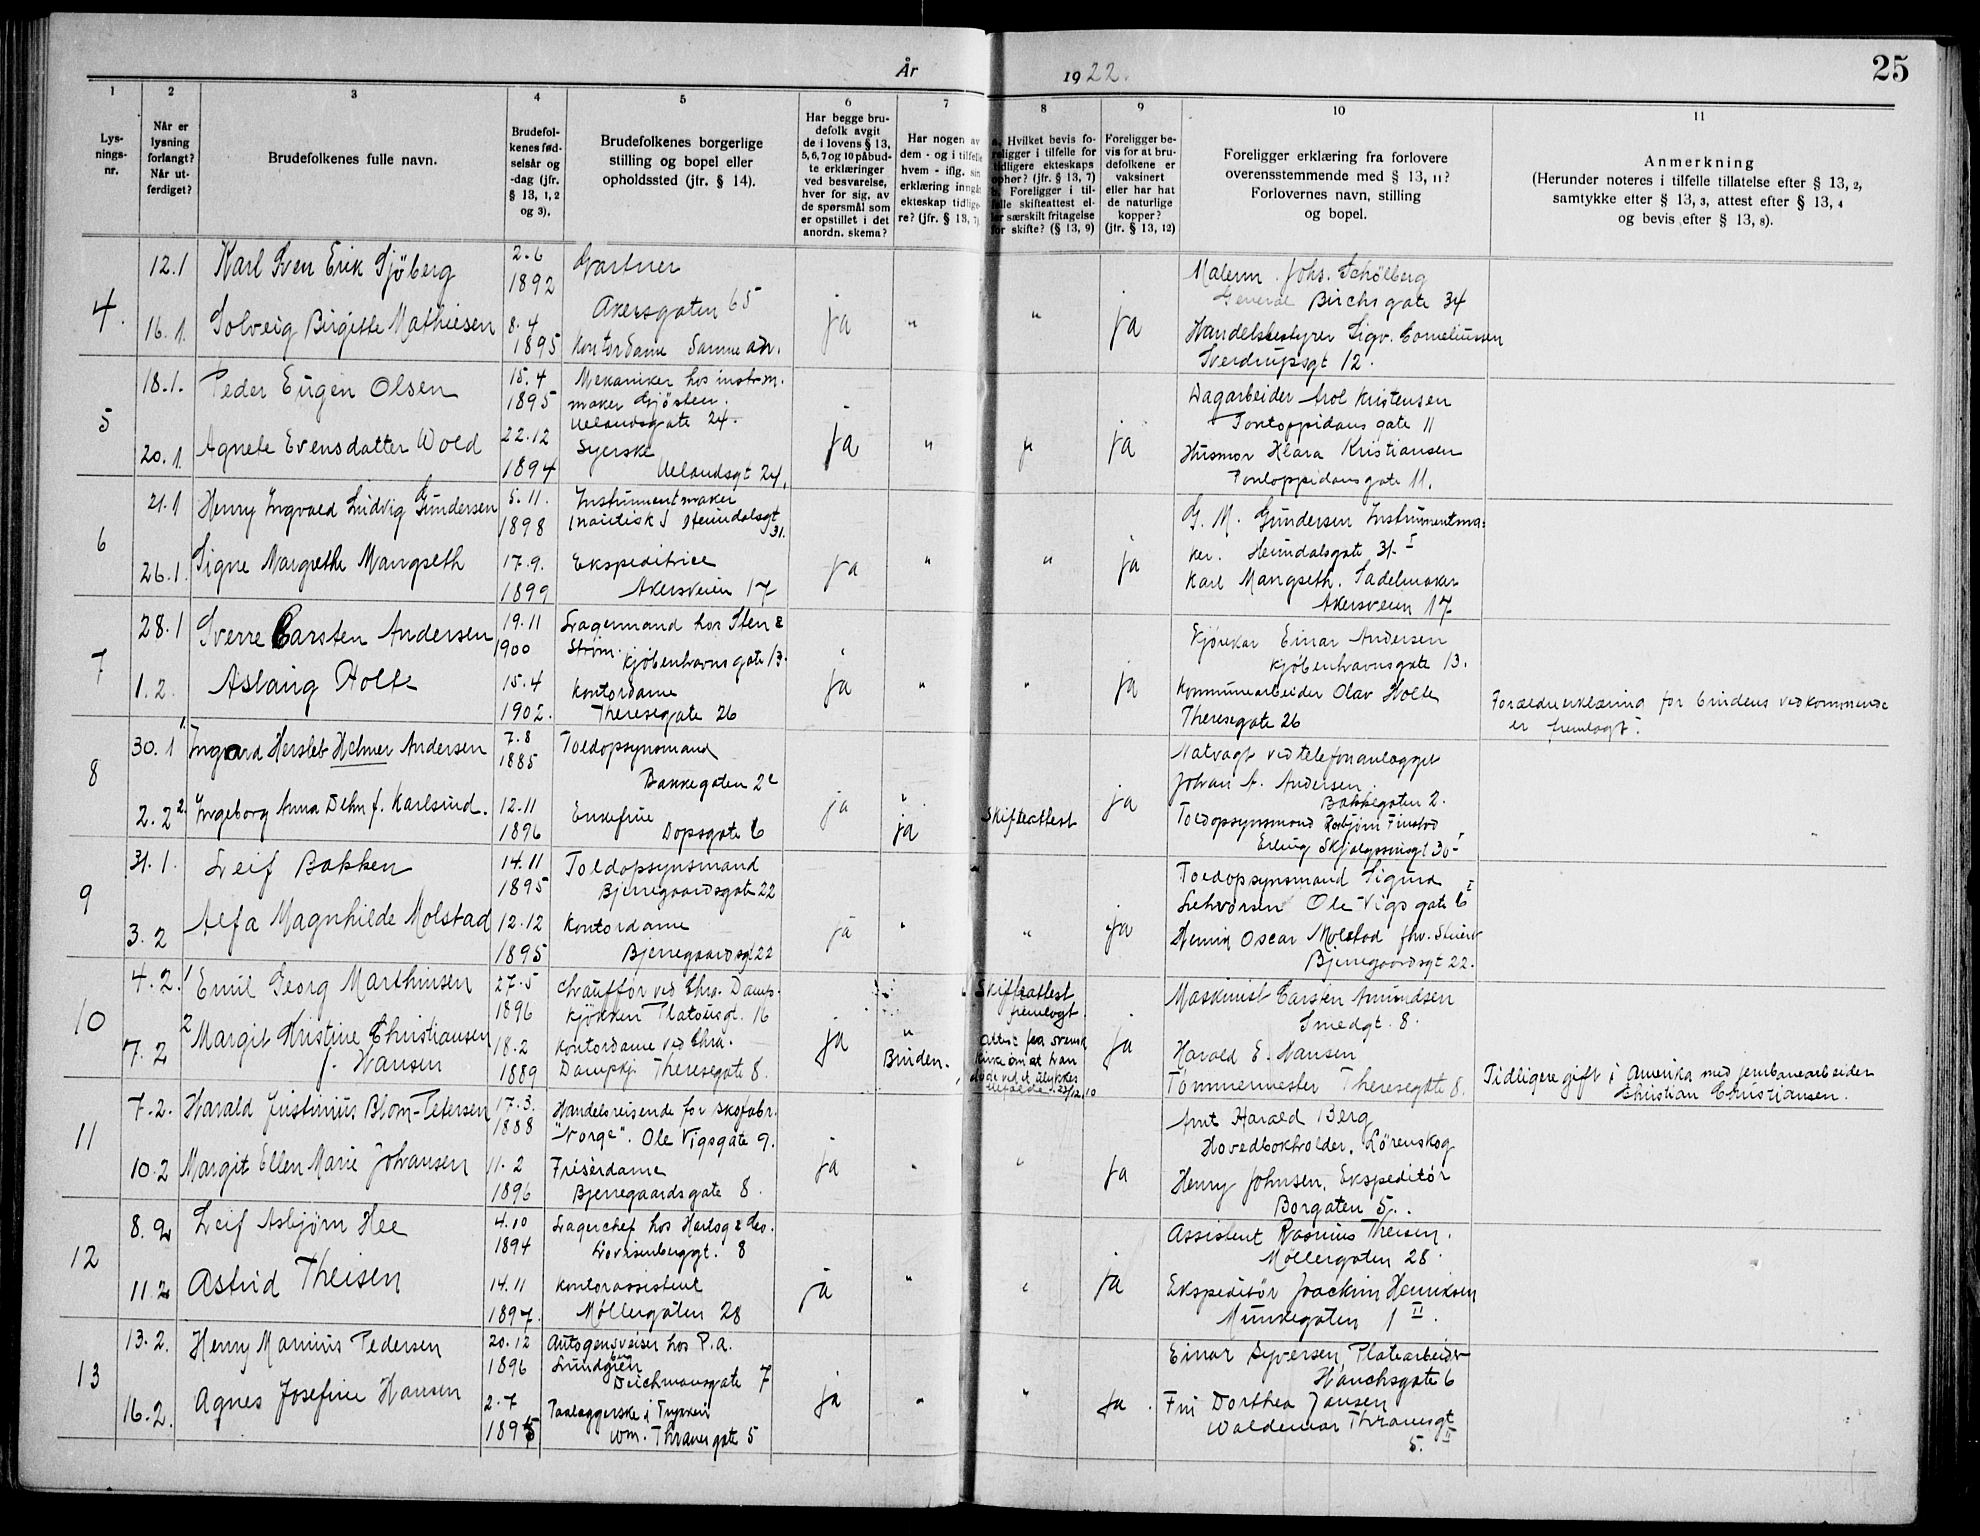 År 1922.
25
1
2
3
4
5
6
7
8
9
10
11
Lys-
nings-
nr.
Når er
lysning
forlangt?
Når ut-
ferdiget?
Brudefolkenes fulle navn.
Brudefol-
kenes fød-
selsår og
-dag (jfr.
§ 13, 1, 2
og 3).
Brudefolkenes borgerlige
stilling og bopel eller
opholdssted (jfr. § 14).
Har begge bru-
defolk avgit
de i lovens § 13,
5, 6, 7 og 10 påbud-
te erklæringer
ved besvarelse,
hver for sig, av
de spørsmål som
er opstillet i det
anordn. skema?
Har nogen av
dem - og i tilfelle
hvem - iflg. sin
erklæring inngåt
ekteskap tidlige-
re? (jfr. § 13, 7)
a. Hvilket bevis fo-
religger i tilfelle for
tidligere ekteskaps
ophør? (jfr. § 13, 7)
b. Foreligger i til-
felle skifteattest el-
ler særskilt fritagelse
for skifte? (§ 13, 9)
Foreligger be-
vis for at bru-
defolkene er
vaksinert
eller har hat
de naturlige
kopper?
(jfr. § 13, 12)
Foreligger erklæring fra forlovere
overensstemmende med § 13, 11?
Forlovernes navn, stilling
og bopel.
Anmerkning
(Herunder noteres i tilfelle tillatelse efter § 13, 2,
samtykke efter § 13, 3, attest efter § 13, 4
og bevis efter § 13, 8).
4.
12.1 Karl Sven Erik Sjöberg 2.6 1892 Gartner
Akersgaten 65
16.1. Solveig Birgitte Mathiesen 8.4 1895 Kontordame Samme adr.
ja " " ja
Malerm. Johs. Schølberg
General Birchs gate 34
Handelsbestyrer Sigv. Corneliussen
Sverdrupsgt 12.
5
18.1. Peder Eugen Olsen 15.4 1895 Mekaniker hos instrm.
maker Gjösten.
Uelandsgate 24.
20.1. Agnete Evensdatter Wold 22.12 1894 Syerske
Uelandsgt 24.
ja " " ja
Dagarbeider Kristensen
Pontoppidans gate 11
Husmor Klara Kristiansen
Pontoppidans gate 11.
6
21.1 Henry Ingvald Ludvig Gundersen 5.11. 1898 Instrumentmaker
Heimdalsgt
31.
26.1. Signe Margrethe Mangseth 17.9. 1899 Ekspeditrice
Akersveien 17
ja " " ja
G. M. Gundersen Instrumentma-
ker. Heimdalsgate 31. I
Karl Mangseth. Sadelmaker
Akersveien 17
7
28.1 Sverre Carsten Andersen 19.11 1900 Lagermand hos Sten &
Strøm. Kjøbenhavns gate 13.
1.2. Aslaug Holte 15.4 1902. Kontordame
Theresegate 26
ja " " ja
Kjørekar Einar Andersen
Kjøbenhavnsgate 13.
Kommunearbeider Olav Holte
Theresegate 26
Forældreerklæring for brudens vedkommende
er fremlagt.
8
30.1 1. Ingvard Herslet Helmer Andersen 7.8 1885 Toldopsynsmand
Bakkegaten 2
2.2 2. Ingeborg Anna Dehn f. Karlsrud. 12.11 1896 Enkefrue
Dopsgate 6
ja " ja Skifteattest ja
Natvagt ved telefonanlægget
Johan A. Andersen.
Bakkegaten 2.
Toldopsynsmand Finstad
Erling Skjalgssonsgt 30 I
9
31.1. Leif Bakken 14.11 1895 Toldopsynsmand
Bjerregaardsgate 22
3.2 Alfa Magnhilde Molstad 12.12 1895 Kontordame
Bjerregaardsgt 22
ja " " ja
Toldopsynsmand Sigurd
Ole Vigs gate 6 I
Henrik Oscar Molstad
Bjerregaardsgt 22.
10
4.2. 1 Emil Georg Marthinsen 27.5 1896 Chauffør ved Chra. Damp-
kjøkken Platousgt. 16
7.2 2 Margit Kristine Christiansen
f. Hansen 18.2 1889 Kontordame ved Chra.
Dampkj. Theresegate 8.
ja " Bruden. Skifteattest
fremlagt.
Attest fra svensk
kirke om at han
døde ved et ulykkes
tilfælde 27/12.10
ja
Maskinist Carsten Amundsen
Smedgt. 8.
Harald E. Hansen
Tömmermester Theresegate 8.
Tidligere gift i Amerika med jernbanearbeider
Christian Christiansen.
11
7.2. Harald Justinius Blom-Petersen 17.3. 1888 Handelsreisende for skofabr.
"Norge". Ole Vigsgate 9.
10.2 Margit Ellen Marie Johansen 11.2 1896 Frisérdame
Bjerregaardsgate 8.
ja " " ja
Arnt Harald Berg
Hovedbokholder, Lörenskog
Henry Johnsen, Ekspeditör
Borgaten 5..
12
8.2 Leif Asbjørn Hee 4.10 1894 Lagerchef hos Hartog & des.
Lovisenberggt. 8
11.2 Astrid Theisen 14.11 1897. Kontorassistent
Møllergaten 28
ja " " ja
Assistent Rasmus Theisen.
Møllergaten 28.
Ekspeditör Joachim Henriksen
Munkegaten 1 II.
13
13.2. Henry Marinus Pedersen 20.12 1896 Autogensveiser hos P.A.
Lundgren
Deichmansgate 7
16.2. Agnes Josefine Hansen 2.7 1895 Paalæggerske i Trykkeri
Wm. Thranes gate 5
ja " " ja.
Einar Syversen, Platearbeider
Hauchsgate 6
Fru Dorthea Jansen
Waldemar Thranesgt
5. II